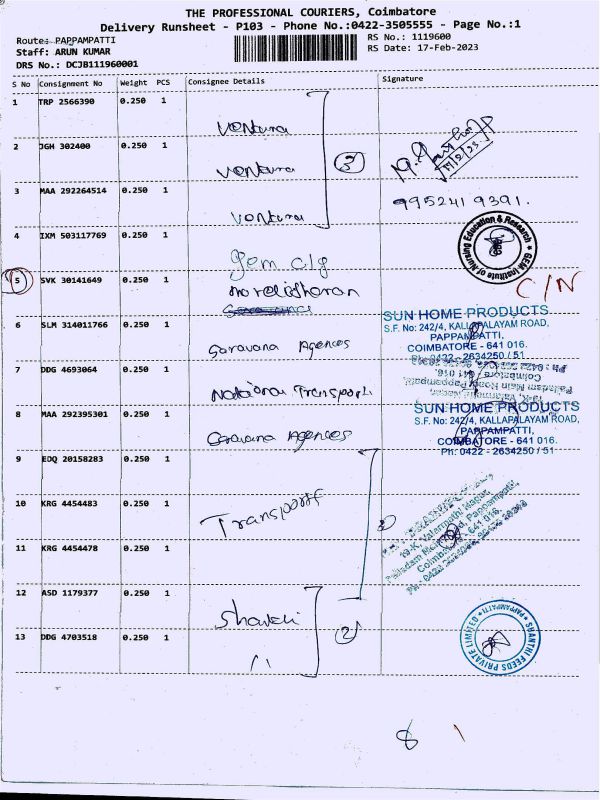 THE PROFESSIONAL COURIERS, Coimbatore
Delivery Runsheet - P103 - Phone No.:0422-3505555 - Page No.:1
Route: PAPPAMPATTI
Staff: ARUN KUMAR
DRS No.: DCJB111960001
RS No.: 1119600
RS Date: 17-Feb-2023
S No Consignment No Weight PCS Consignee Details Signature
1 TRP 2566390 0.250 1
Ventura
2 JGH 302400 0.250 1
Ventura
3
17/2/23
3 MAA 292264514 0.250 1
9952419391.
Ventura
4 IXM 503117769 0.250 1
Gem clg
GEM Institute of Nursing Education & Research
5 SVK 30141649 0.250 1
C/N
6 SLM 314011766 0.250 1
Saravana Agences
SUN HOME PRODUCTS
S.F. No: 242/4, KALLAPALAYAM ROAD,
PAPPAMPATTI,
COIMBATORE - 641 016.
Ph: 0422 - 2634250 / 51
7 DDG 4693064 0.250 1
National Transport
8 MAA 292395301 0.250 1
Saravana Agences
SUN HOME PRODUCTS
S.F. No: 242/4, KALLAPALAYAM ROAD,
PAPPAMPATTI,
COIMBATORE - 641 016.
Ph: 0422 - 2634250 / 51
9 EDQ 20158283 0.250 1
10 KRG 4454483 0.250 1
Transport
11 KRG 4454478 0.250 1
12 ASD 1179377 0.250 1
Shanthi
2
13 DDG 4703518 0.250 1
11
SHANTHI FEEDS PRIVATE LIMITED
PAPPAMPATTI
8